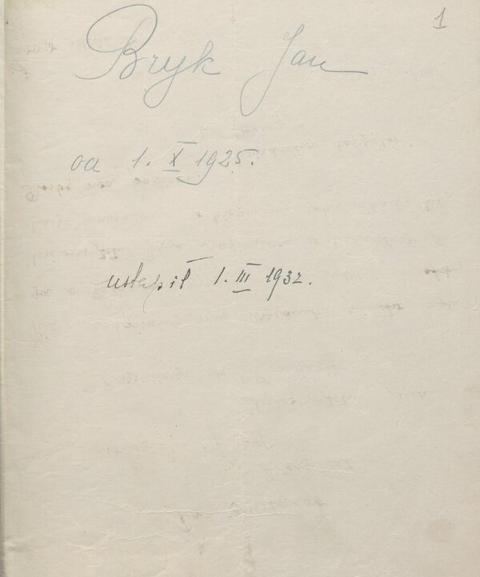 1
Bryk Jan
od 1. X 1925.
ustąpił 1. III 1932.